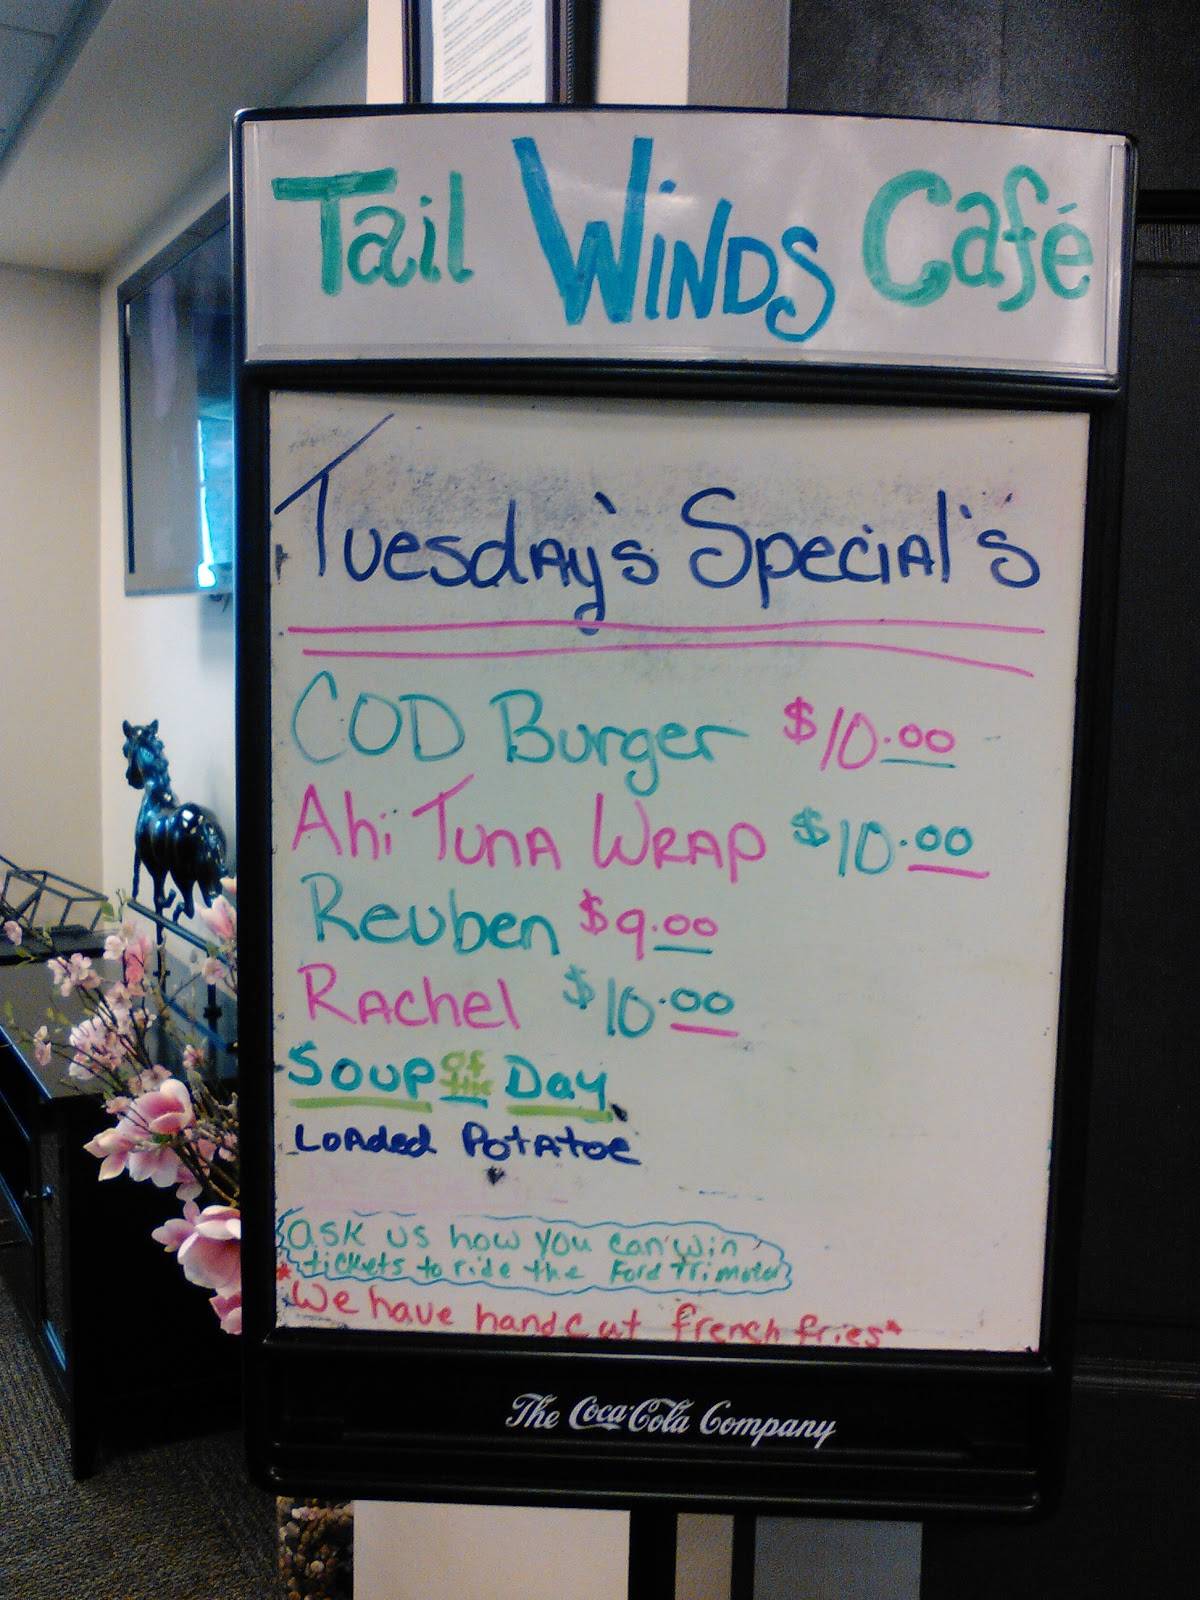 Tail Winds Café
Tuesday's Special's
COD Burger $10.00
Ahi Tuna Wrap $10.00
Reuben $9.00
Rachel $10.00
Soup of the Day
Loaded Potatoe
ask us how you can win
tickets to ride the Ford Trimotor
*We have handcut french fries*
The Coca-Cola Company